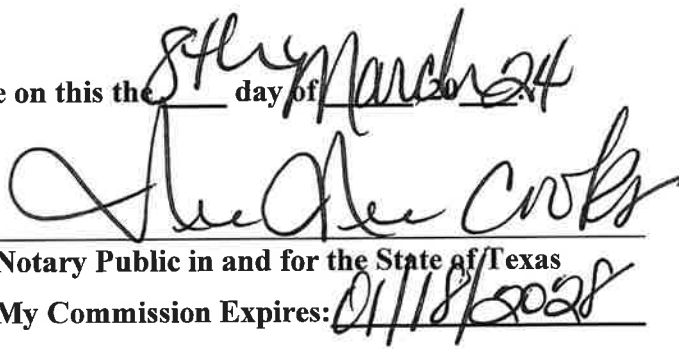 e on this the 8th day of March, 2024.
Cooks
Notary Public in and for the State of Texas
My Commission Expires: 01/18/2028